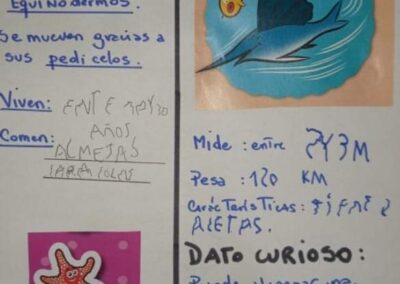 EQUINODERMOS.
Se mueven gracias a
sus pedicelos.
Viven: ENTE 7Y30
AÑOS
Comen:
ALMEJAS
Mide: entre 2Y3M
Pesa: 120 KM
Características: TIENE 2
ALETAS.
DATO CURIOSO: